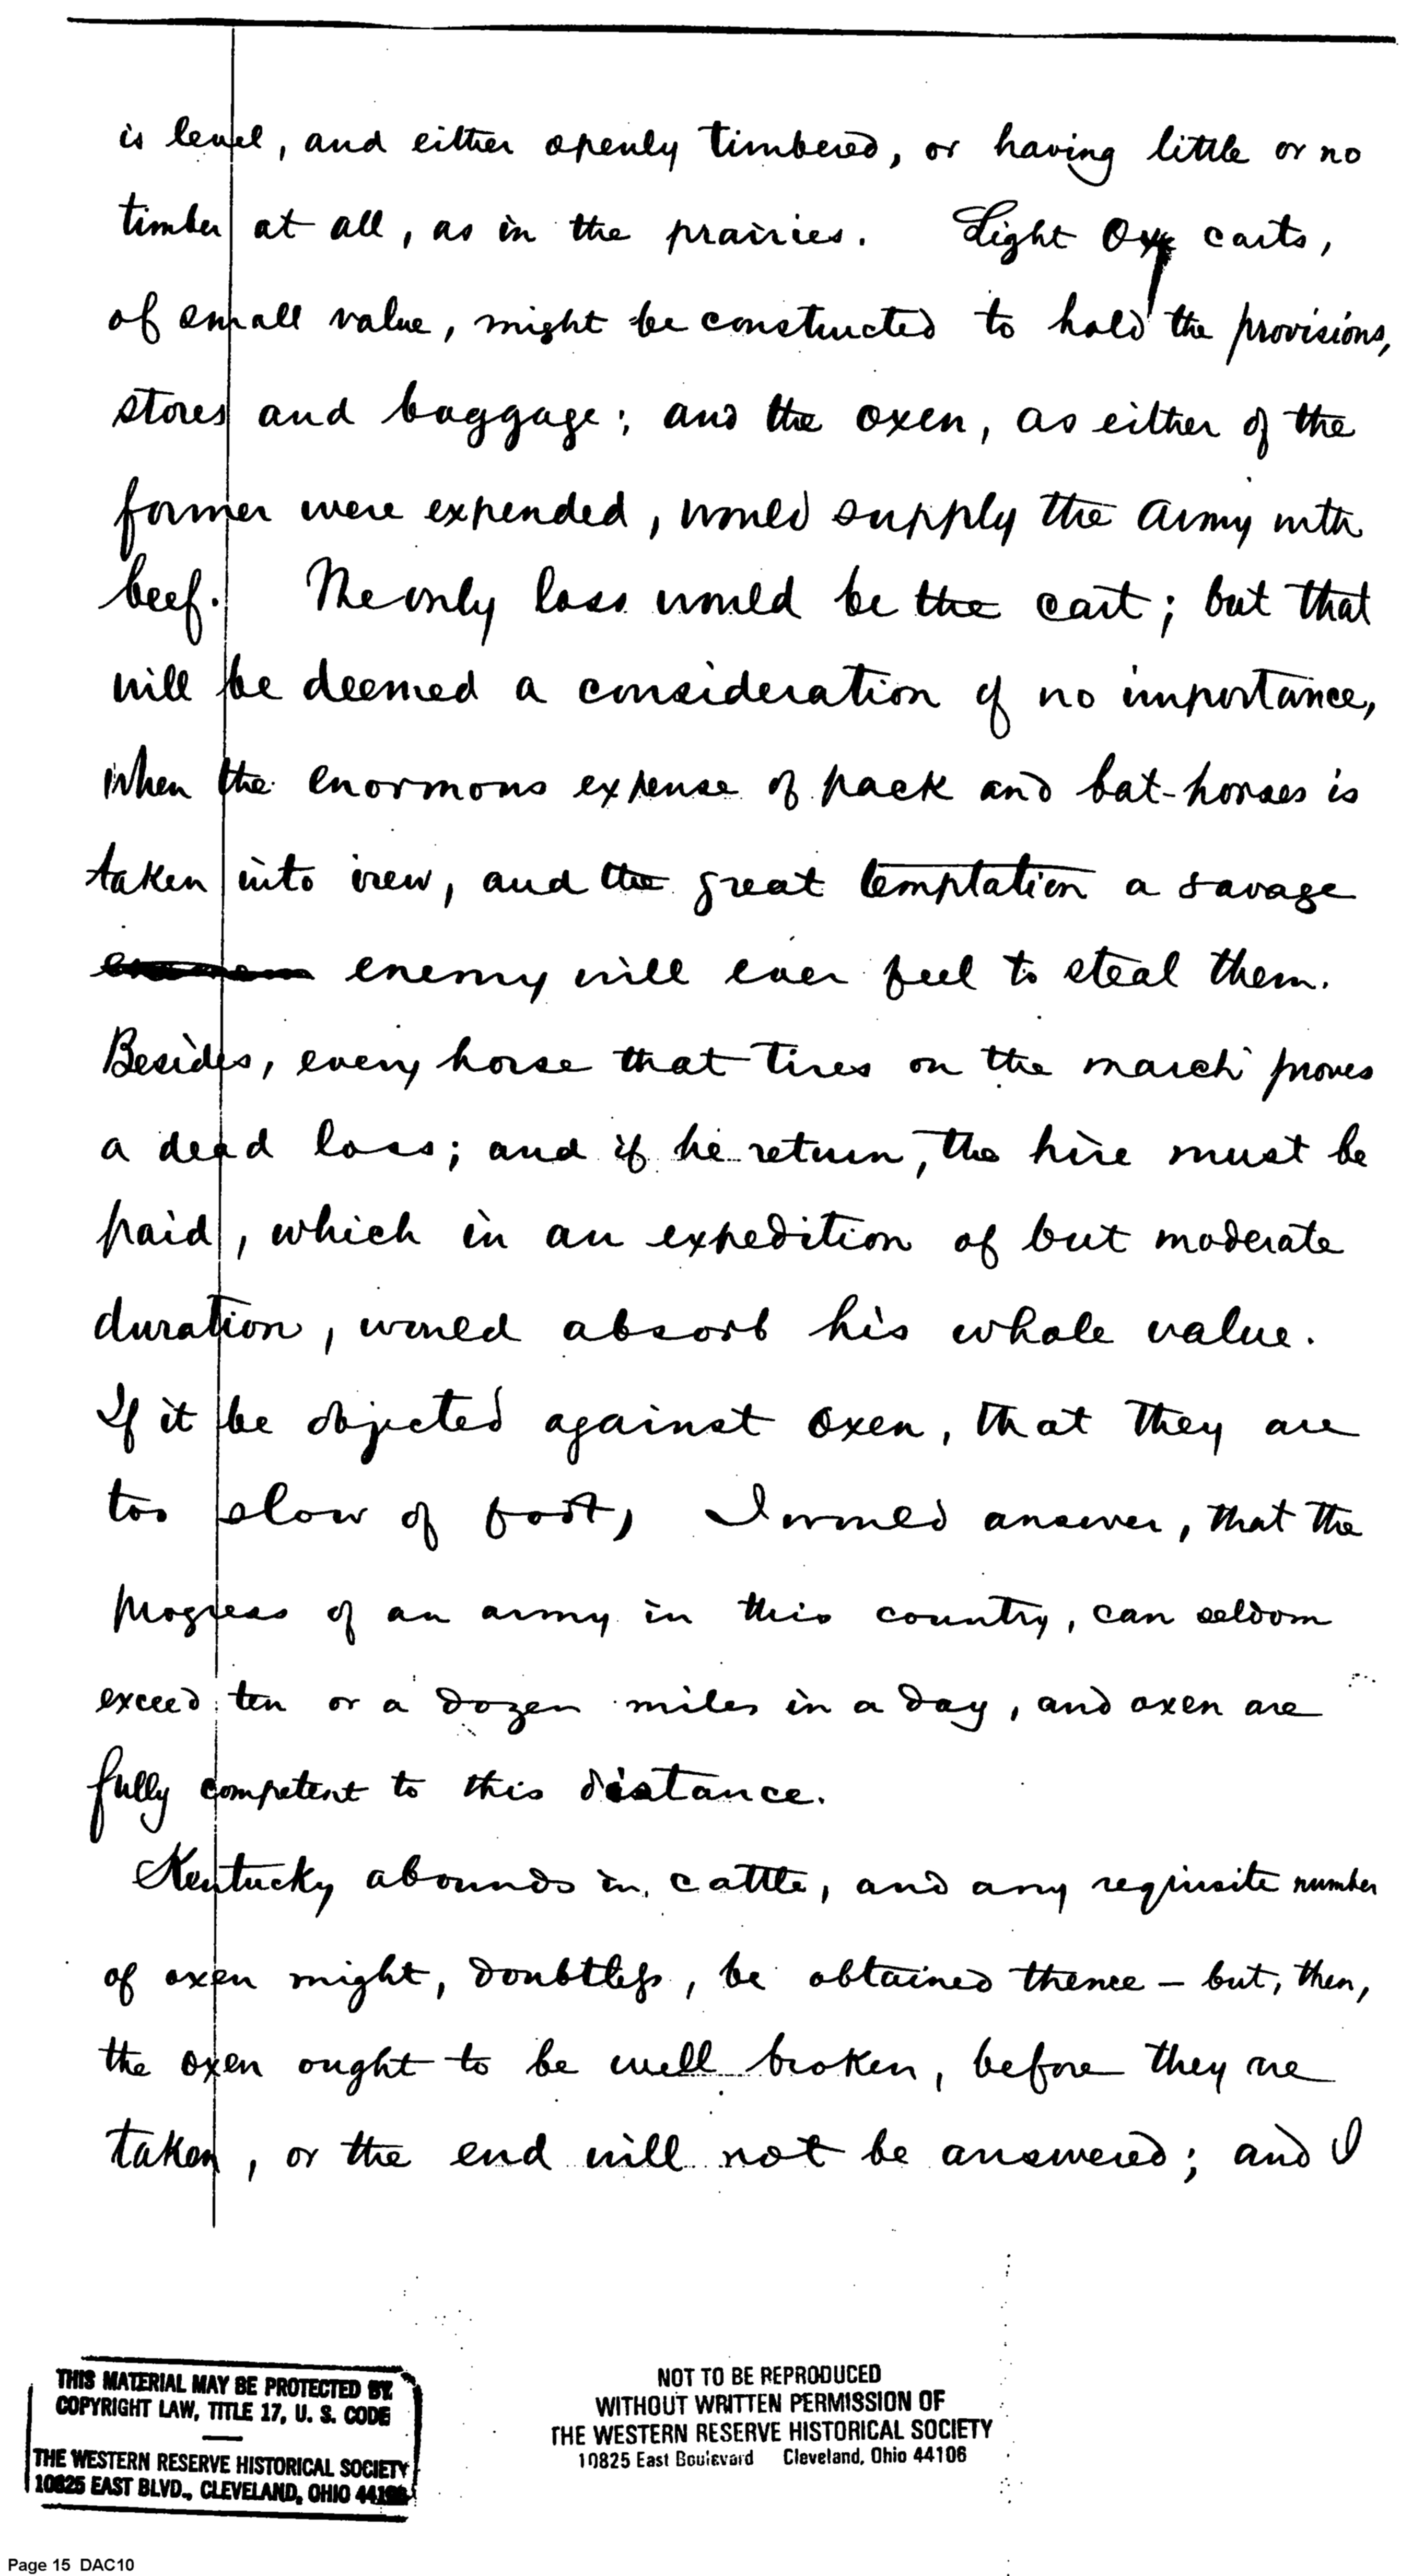 is level, and either openly timbered, or having little or no
timber at all, as in the prairies. Light Ox carts,
of small value, might be constructed to hold the provisions,
stores and baggage; and the oxen, as either of the
former were expended, would supply the army with
beef. The only loss would be the cart; but that
will be deemed a consideration of no importance,
when the enormous expense of pack and bat-horses is
taken into view, and the great temptation a savage
enemy will ever feel to steal them.
Besides, every horse that tires on the march proves
a dead loss; and if he return, the hire must be
paid, which in an expedition of but moderate
duration, would absorb his whole value.
If it be objected against oxen, that they are
too slow of foot, I would answer, that the
progress of an army in this country, can seldom
exceed ten or a dozen miles in a day, and oxen are
fully competent to this distance.
Kentucky abounds in cattle, and any requisite number
of oxen might, doubtless, be obtained thence – but, then,
the oxen ought to be well broken, before they are
taken, or the end will not be answered; and I
THIS MATERIAL MAY BE PROTECTED BY
COPYRIGHT LAW, TITLE 17, U. S. CODE
THE WESTERN RESERVE HISTORICAL SOCIETY
10825 EAST BLVD., CLEVELAND, OHIO 44106
NOT TO BE REPRODUCED
WITHOUT WRITTEN PERMISSION OF
THE WESTERN RESERVE HISTORICAL SOCIETY
10825 East Boulevard Cleveland, Ohio 44106
Page 15 DAC10